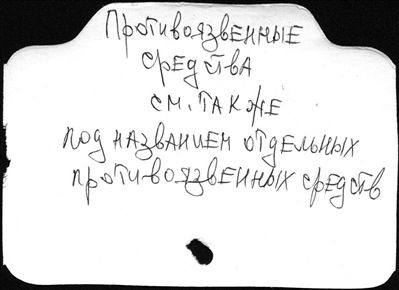 Противоязвенные
средства
см. также
под названием отдельных
противоязвенных средств